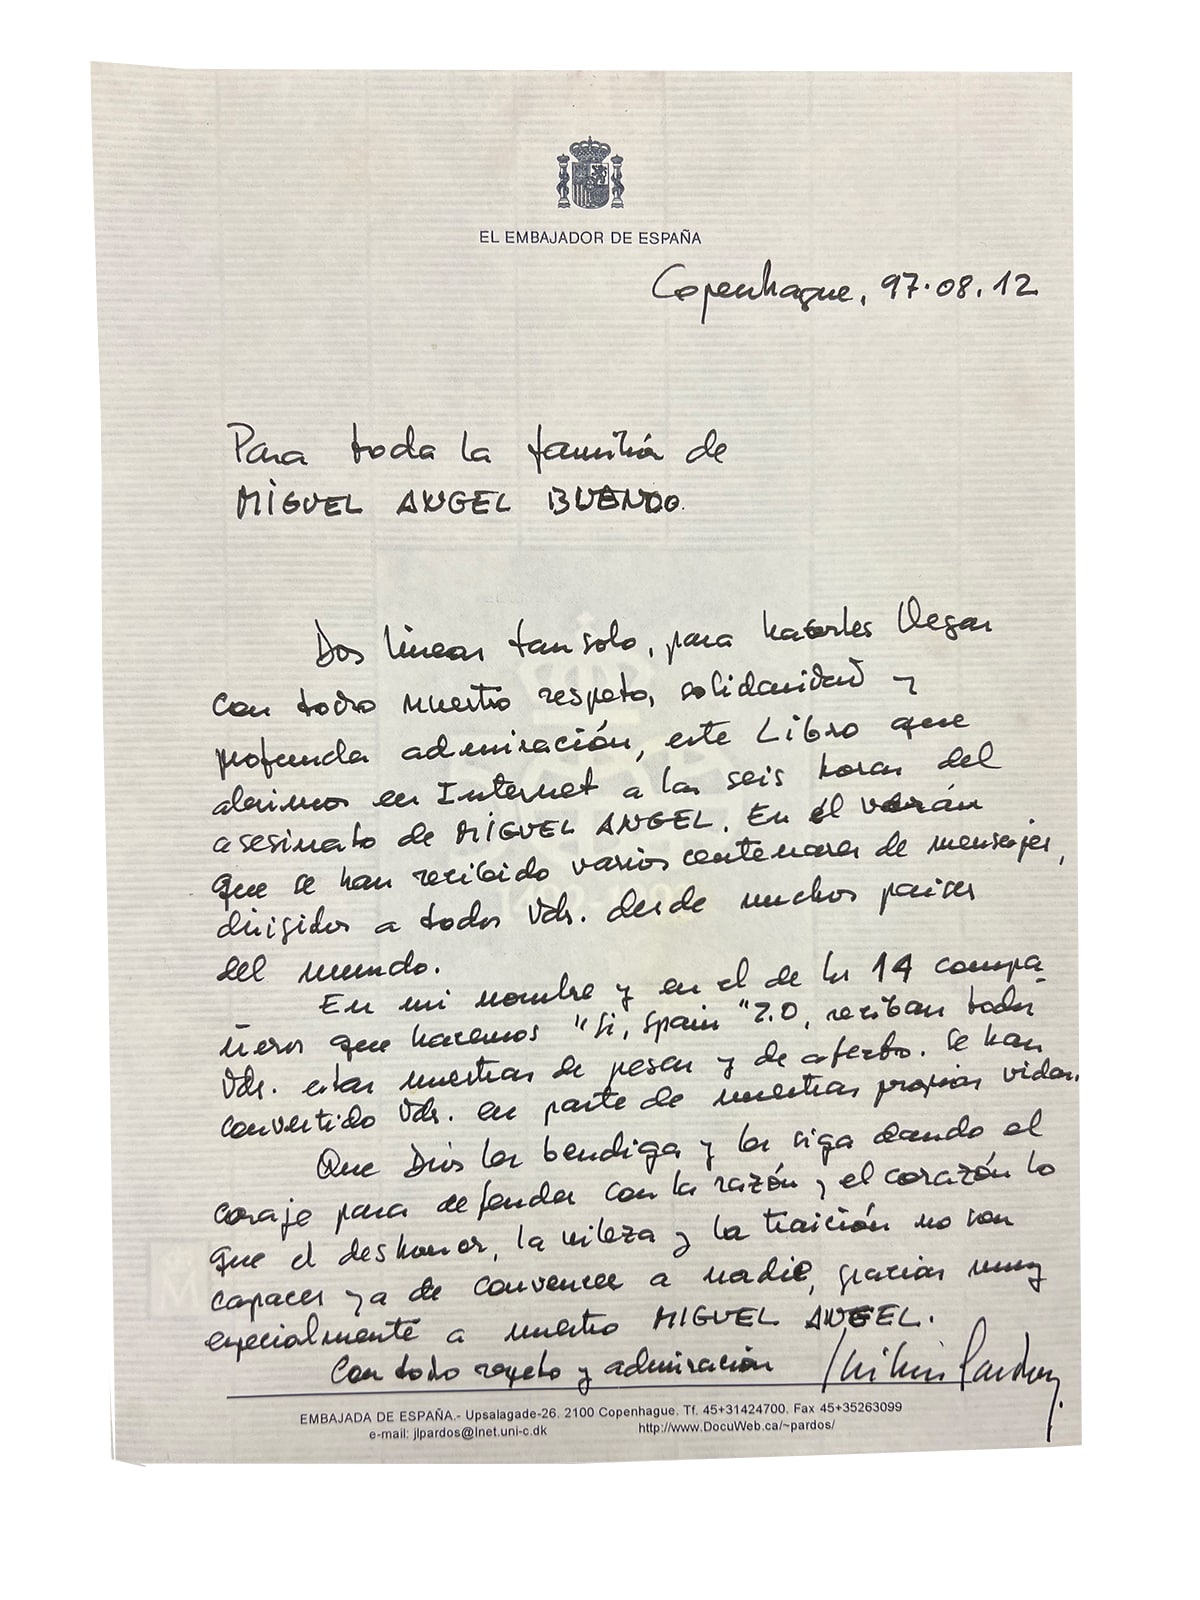 EL EMBAJADOR DE ESPAÑA
Copenhague, 97.08.12
Para toda la familia de
MIGUEL ANGEL
Dos líneas tan solo, para hacerles llegar
con todo nuestro respeto, solidaridad y
profunda admiración, este Libro que
abrimos en Internet a las seis horas del
asesinato de MIGUEL ANGEL. En él verán
que se han recibido varios centenares de mensajes,
dirigidos a todos Vds. desde muchos países
del mundo.
En mi nombre y en el de los 14 compa-
ñeros que hacemos "Si, Spain" 2.0, reciban todos
Vds. estas muestras de pesar y de afecto. Se han
convertido Vds. en parte de nuestras propias vidas.
Que Dios les bendiga y les siga dando el
coraje para defender con la razón y el corazón lo
que el deshonor, la vileza y la traición no son
capaces ya de convencer a nadie, gracias muy
especialmente a nuestro MIGUEL ANGEL.
Con todo respeto y admiración
EMBAJADA DE ESPAÑA.- Upsalagade-26. 2100 Copenhague. Tf. 45+31424700. Fax 45+35263099
e-mail: jlpardos@Inet.uni-c.dk http://www.DocuWeb.ca/~pardos/